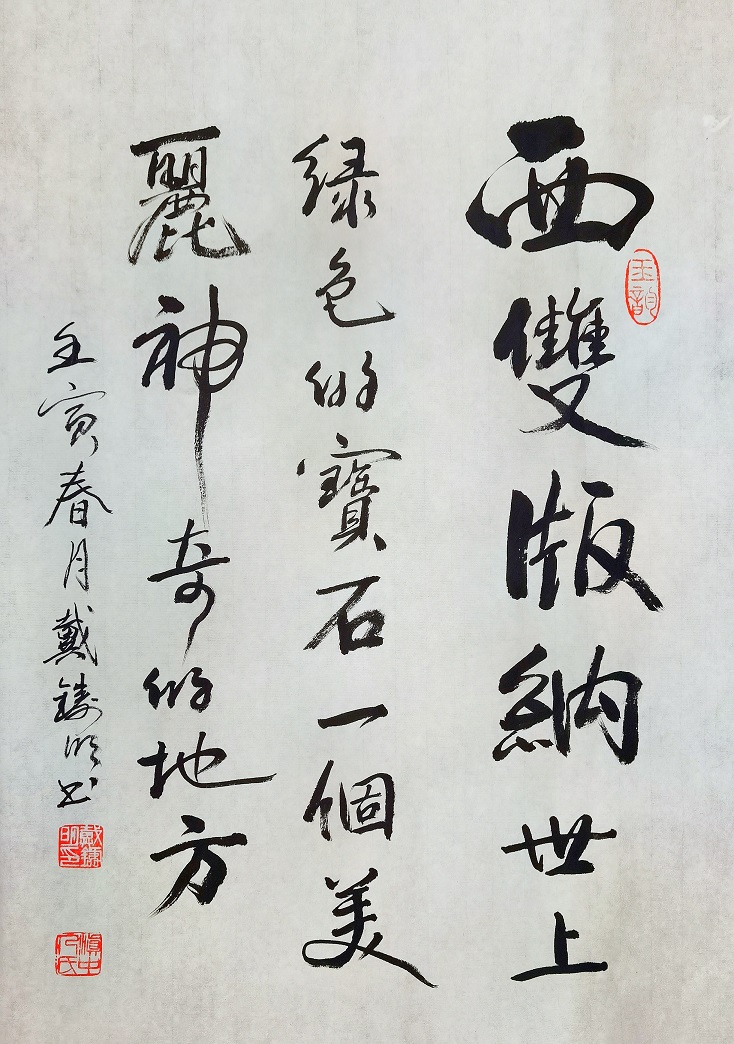 西雙版納世上
綠色的寶石一個美
麗神奇的地方
壬寅春月戴鑄明书
玉韻
戴鑄明印